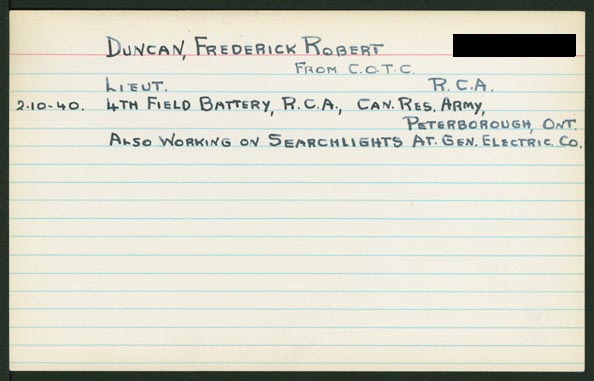 DUNCAN, FREDERICK ROBERT
FROM C.O.T.C.
LIEUT. R.C.A.
2-10-40. 4TH FIELD BATTERY, R.C.A., CAN. RES. ARMY,
PETERBOROUGH, ONT.
ALSO WORKING ON SEARCHLIGHTS AT. GEN. ELECTRIC. CO.